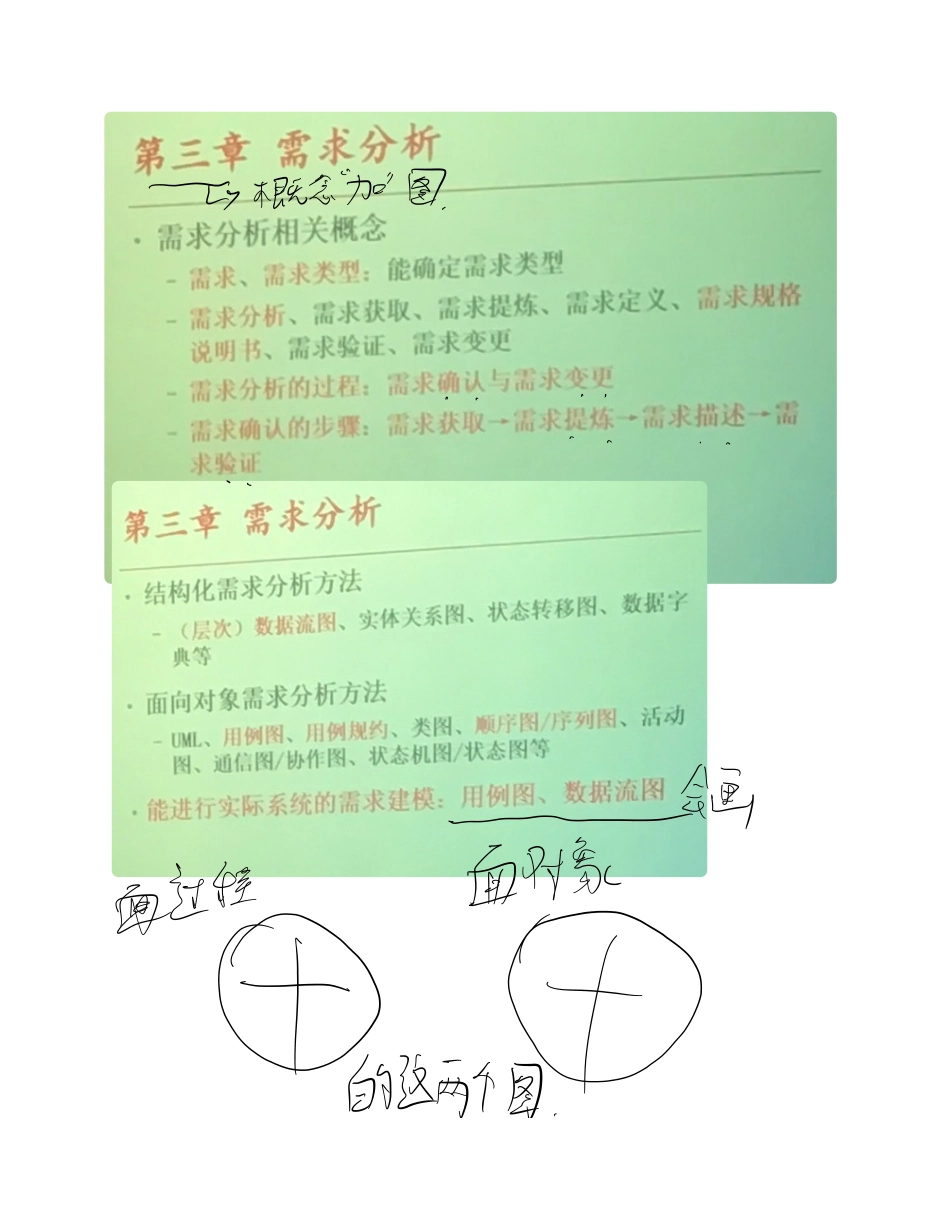 第三章 需求分析
↳ 概念“加”图.
• 需求分析相关概念
– 需求、需求类型：能确定需求类型
– 需求分析、需求获取、需求提炼、需求定义、需求规格
说明书、需求验证、需求变更
– 需求分析的过程：需求确认与需求变更
– 需求确认的步骤：需求获取→需求提炼→需求描述→需
求验证
第三章 需求分析
• 结构化需求分析方法
– （层次）数据流图、实体关系图、状态转移图、数据字
典等
• 面向对象需求分析方法
– UML、用例图、用例规约、类图、顺序图/序列图、活动
图、通信图/协作图、状态机图/状态图等
• 能进行实际系统的需求建模：用例图、数据流图 会画
面过程 面对象
的这两个图.